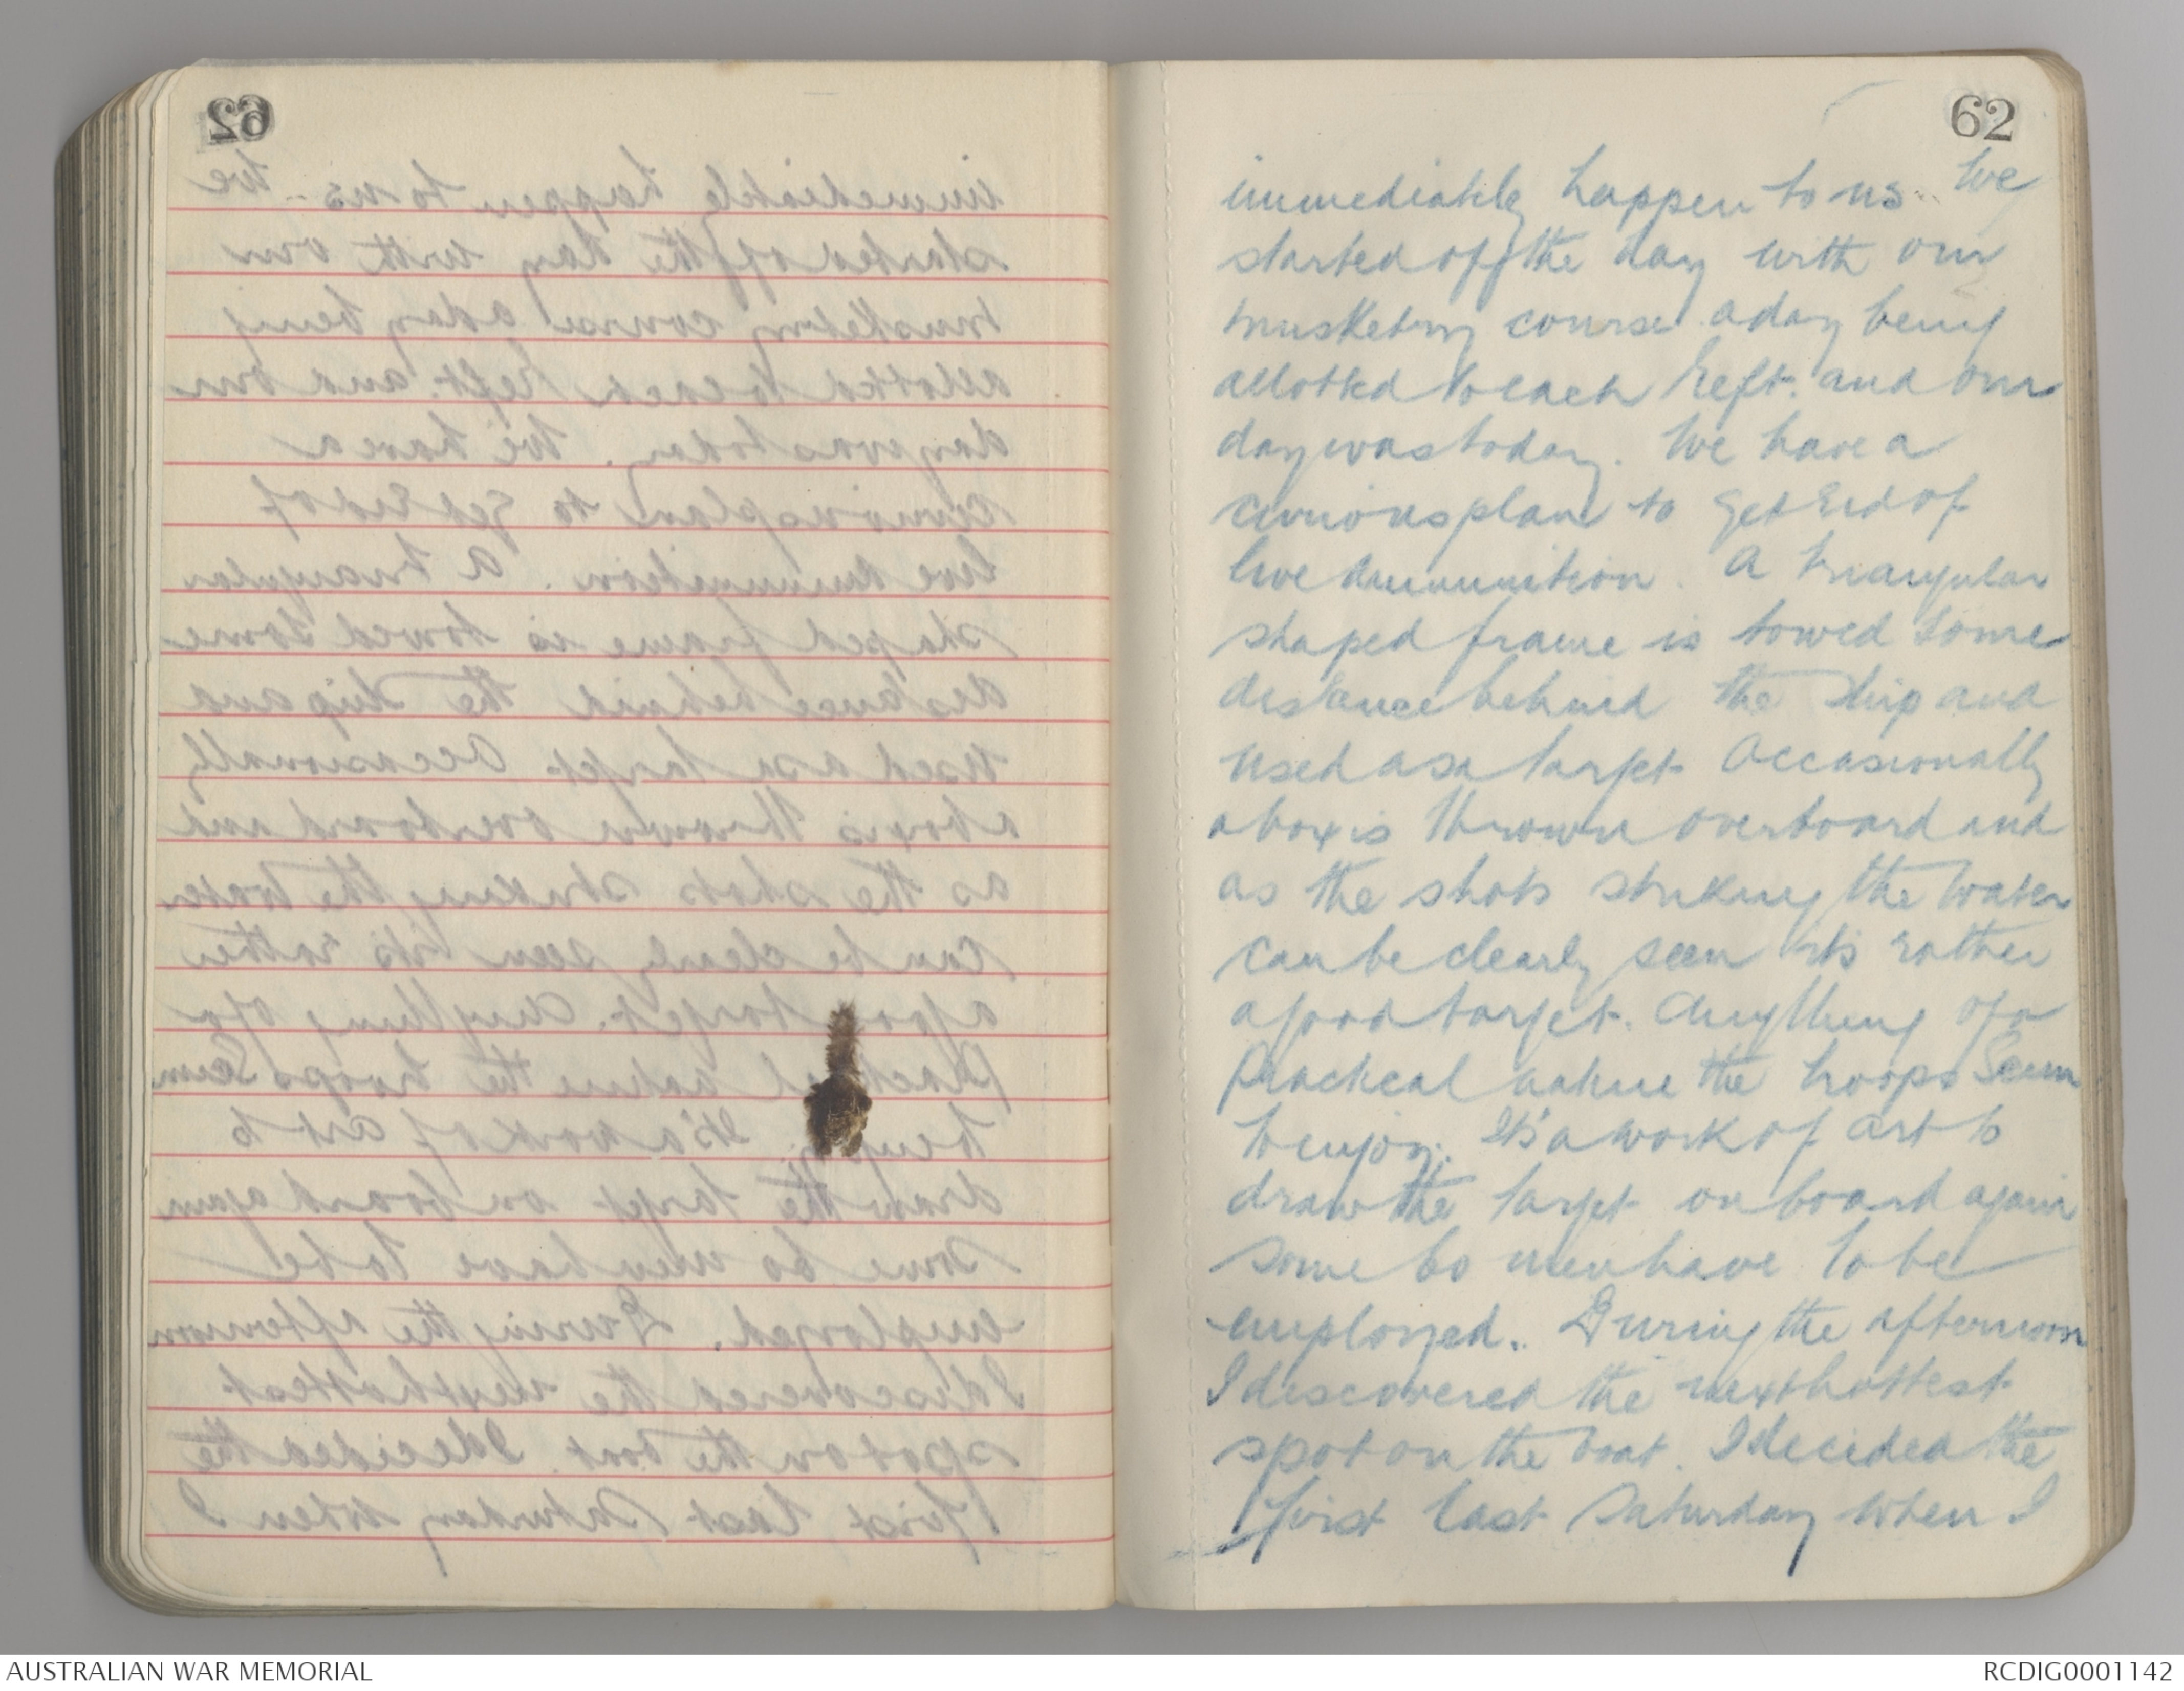 62
immediately happen to us. We
started off the day with our
musketry course a day being
allotted to each Reft. and our
day was today. We have a
curious plan to get rid of
live ammunition. A triangular
shaped frame is towed some
distance behind the ship and
used as a target. Occasionally
a box is thrown overboard and
as the shots striking the water
can be clearly seen its rather
a good target. Anything of a
practical nature the troops seem
to enjoy. It's a work of art to
draw the target on board again
some 60 men have to be
employed. During the afternoon
I discovered the next hottest
spot on the boat. I decided the
first last Saturday when I
AUSTRALIAN WAR MEMORIAL
RCDIG0001142